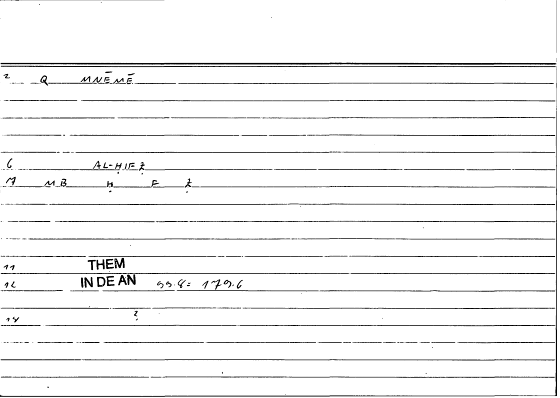 2 Q MNĒMĒ
6 AL-ḤIFẒ
7 MB Ḥ F Ẓ
11 THEM
12 IN DE AN 99.8 = 179.6
14